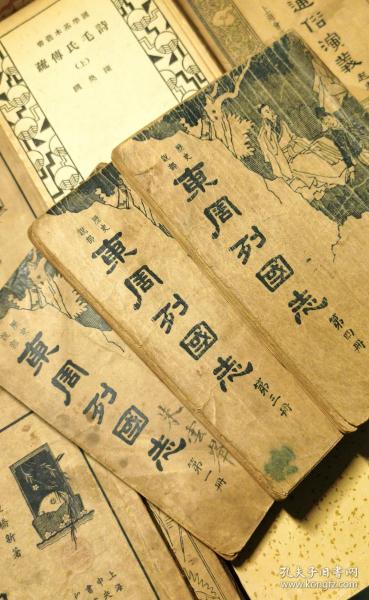 國學基本叢書
詩毛氏傳疏
(上)
陳奐
通俗演義
歷史說部
東周列國志
第四冊
歷史說部
東周列國志
第三冊
歷史說部
東周列國志
第一冊
孔夫子旧书网
kongfz.com